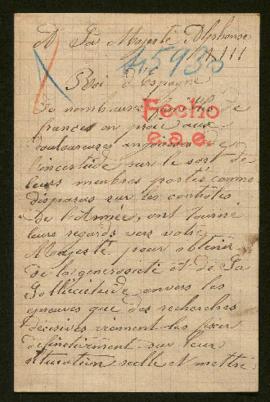 A Sa Majesté Alphonse
XIII
45930
Roi d'Espagne
De nombreuses familles de
France en proie aux
Fecho
douloureuses angoisses de
e.a.e.
l'incertitude sur le sort de
leurs membres portés comme
disparus sur les contrôles
de l'Armée, ont tourné
leurs regards vers votre
Majesté pour obtenir
de la générosité et de Sa
Sollicitude envers les
que des recherches
décisives viennent les
définitivement sur leur
situation réelle et mettre